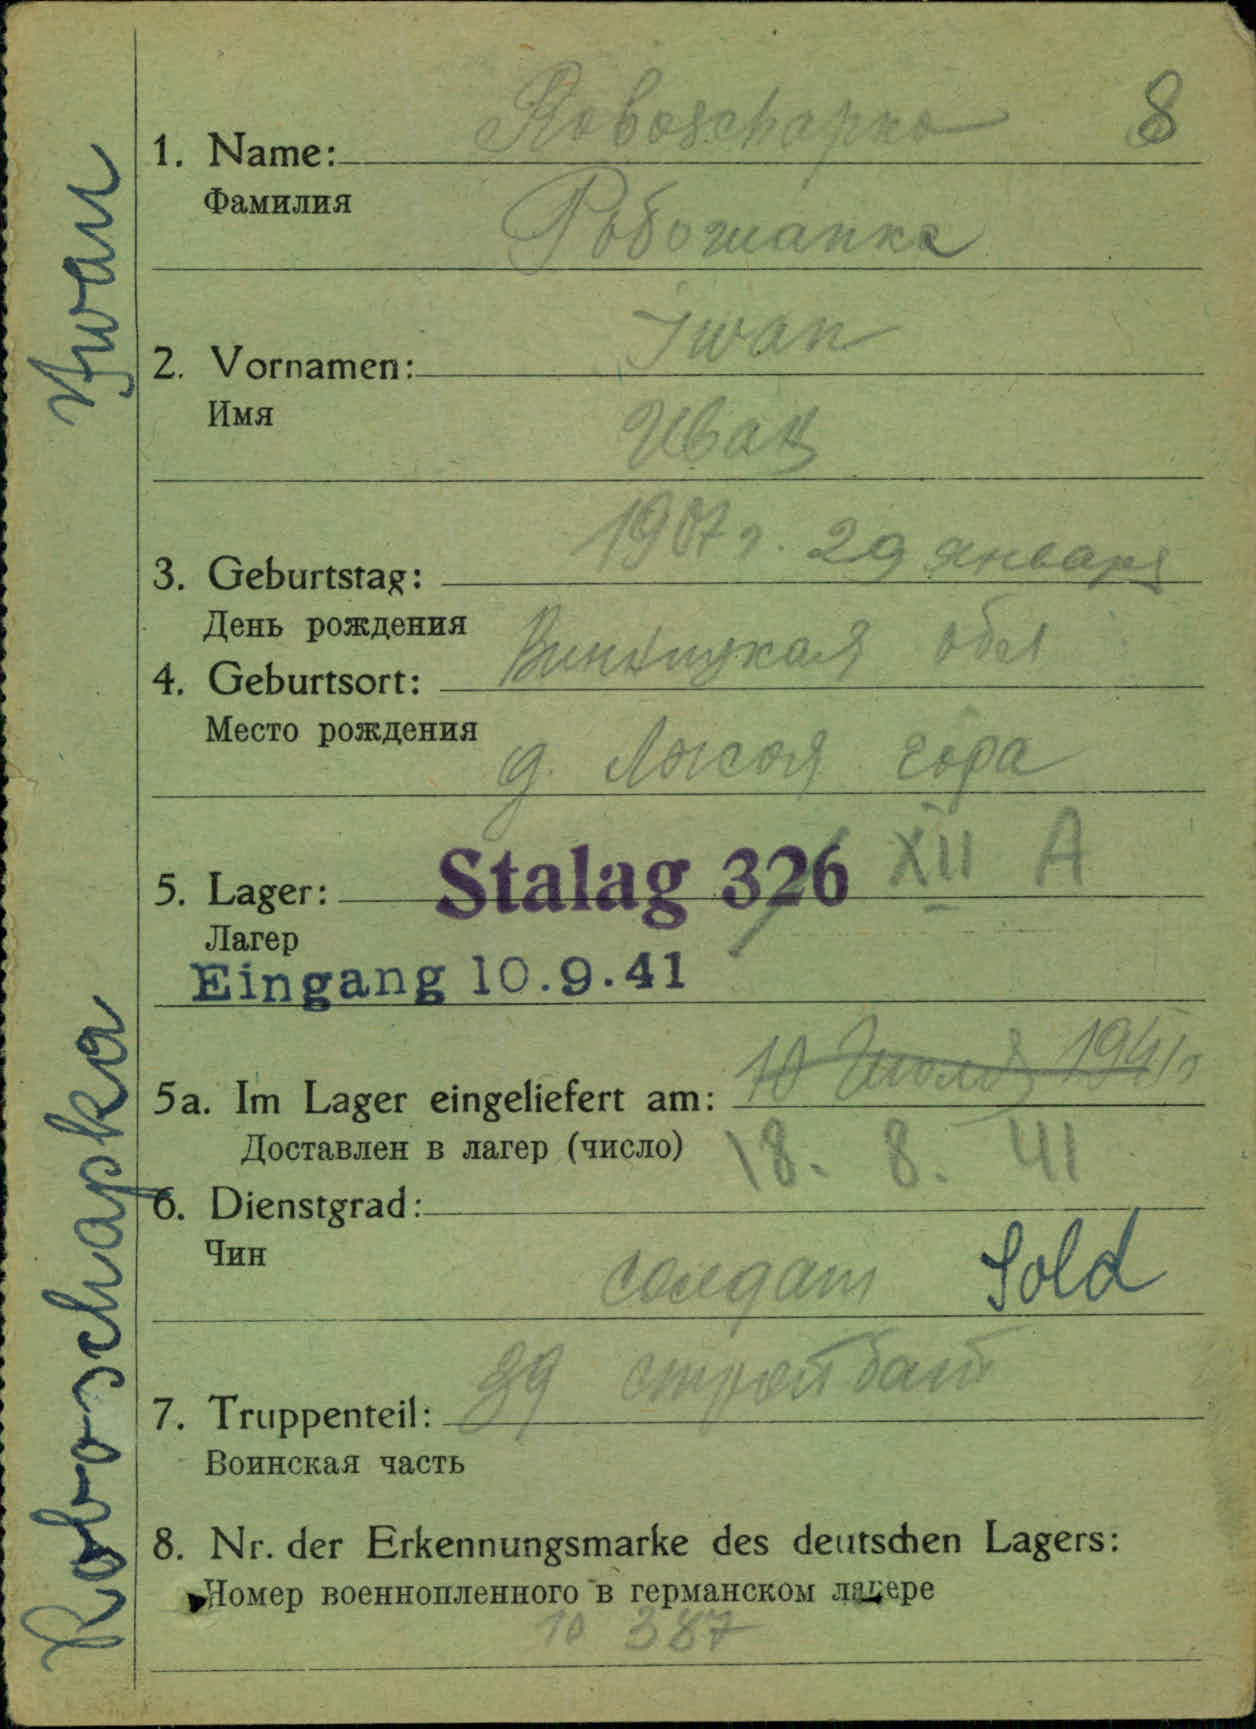 Roboschapka Iwan
Roboschapka 8
1. Name:
Фамилия
Робошапка
Iwan
2. Vornamen:
Имя
Иван
1907 г. 29 января
3. Geburtstag:
День рождения
Винницкая обл
4. Geburtsort:
Место рождения
д. Лысая гора
5. Lager: Stalag 326 XII A
Лагер
Eingang 10.9.41
5a. Im Lager eingeliefert am: 10 Июля 1941
Доставлен в лагер (число) 18. 8. 41
6. Dienstgrad:
Чин
солдат Sold
7. Truppenteil: 89 стройбат
Воинская часть
8. Nr. der Erkennungsmarke des deutschen Lagers:
Номер военнопленного в германском лагере
10 387